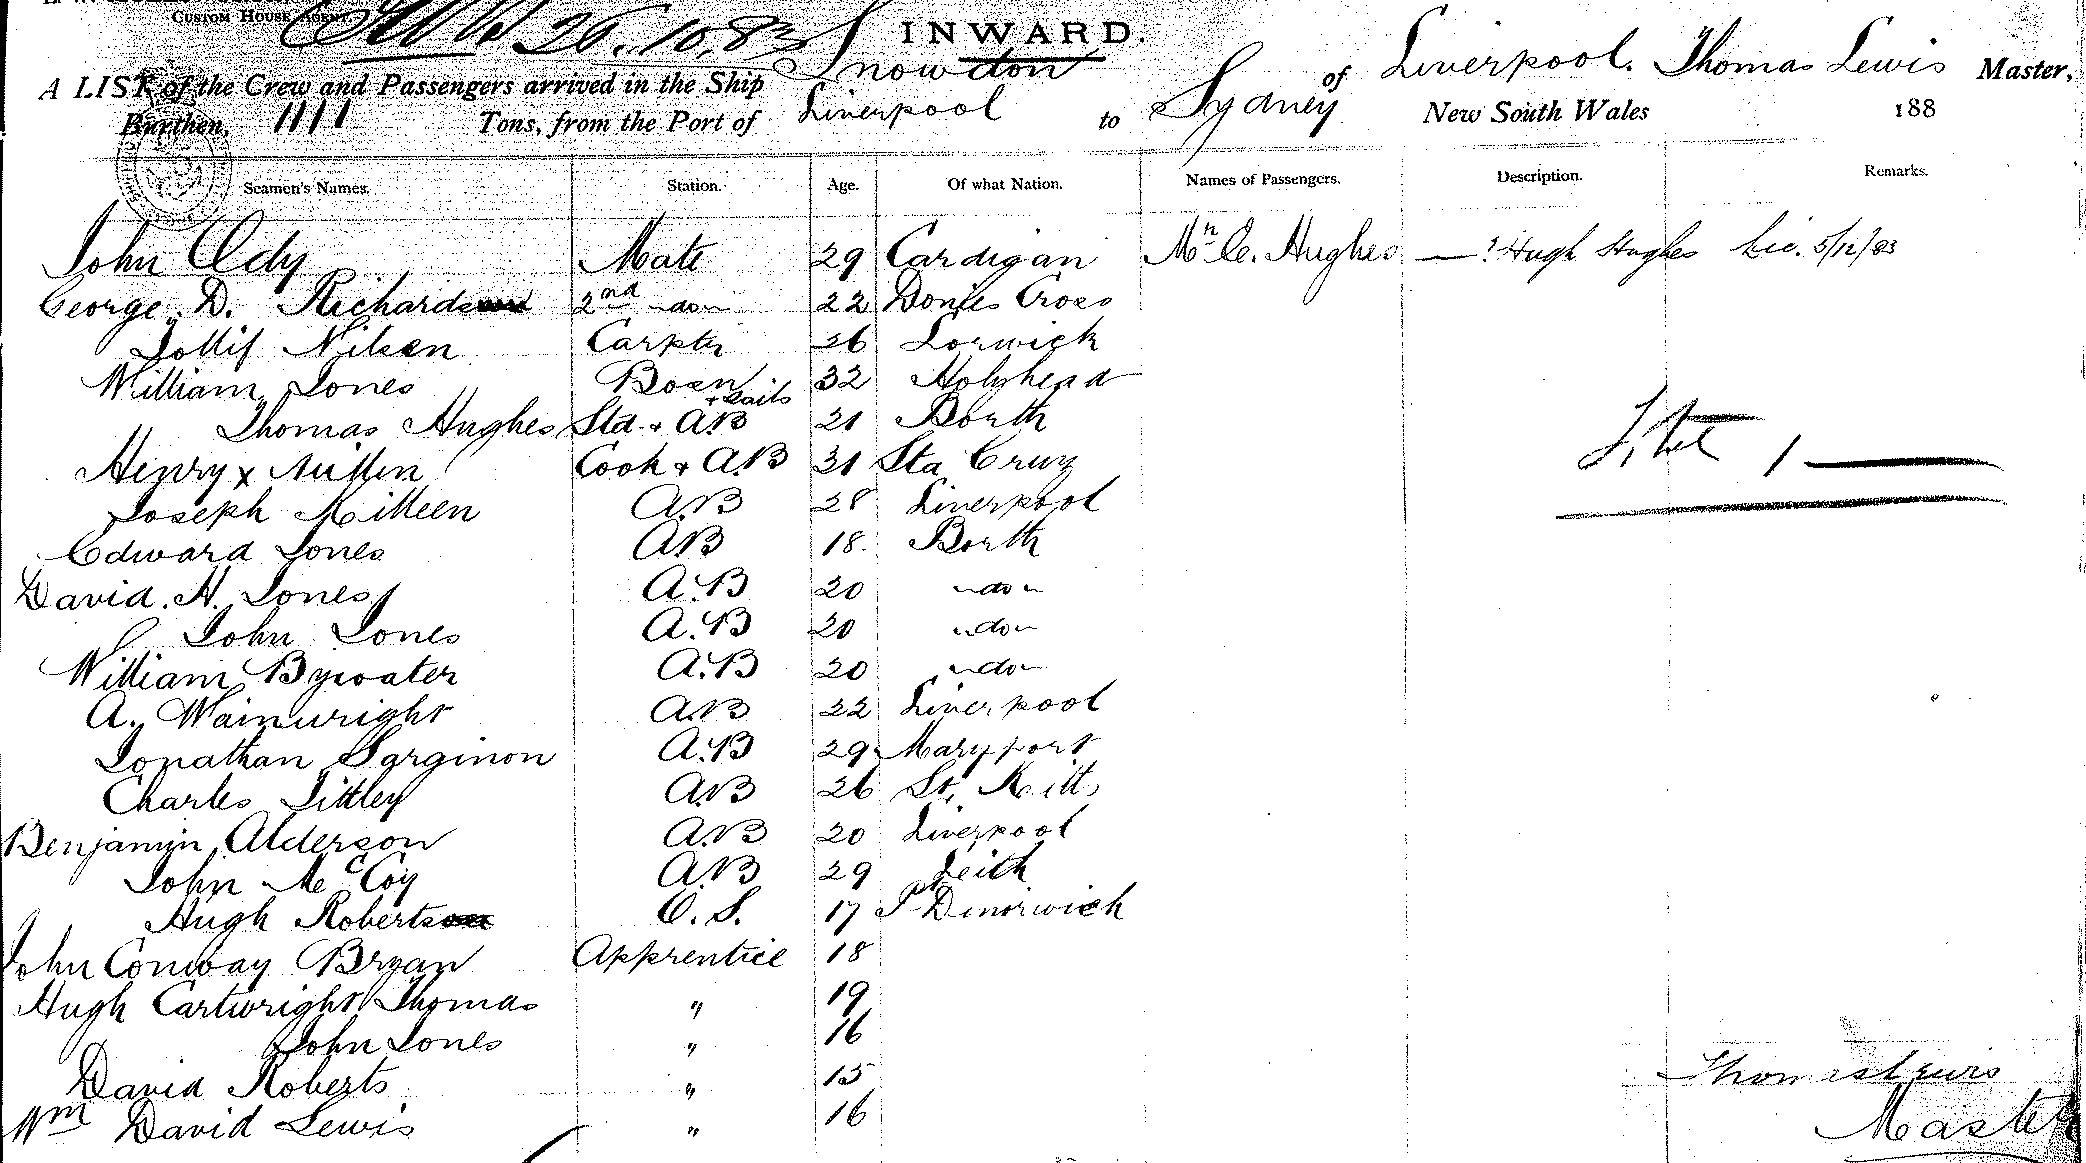 CUSTOM HOUSE AGENT
26.10.83
INWARD.
A LIST of the Crew and Passengers arrived in the Ship Snowdon of Liverpool. Thomas Lewis Master,
Burthen, 1111 Tons, from the Port of Liverpool to Sydney New South Wales 188
Seamen's Names. Station. Age. Of what Nation. Names of Passengers. Description. Remarks.
John Edy Mate 29 Cardigan Hughes — ? Hugh Hughes Lic. 5/12/83
George D. Richards 2nd do 22 Cross
Nilsen Carptr 26 Lorwick
William Jones Bosn + Sails 32 Holyhead
Thomas Hughes Std + A.B 21 Borth
Henry x Cook + A.B 31 Sta Cruz
Joseph A.B 28 Liverpool
Edward Jones A.B 18. Borth
David. H. Jones A.B 20 do
John Jones A.B 20 do
William Bywater A.B 20 do
A. Wainwright A.B 22 Liverpool
Jonathan Sarginon A.B 29 Maryport
Charles Sittley A.B 26 St. Kitts
Benjamin Alderson A.B 20 Liverpool
John McCoy A.B 29 Leith
Hugh Roberts O.S. 17 Pt Dinorwick
John Conway Bryan Apprentice 18
Hugh Cartwright Thomas " 19
John Jones " 16
David Roberts " 15
Wm David Lewis " 16
Total 1 —
Thomas Lewis
Master